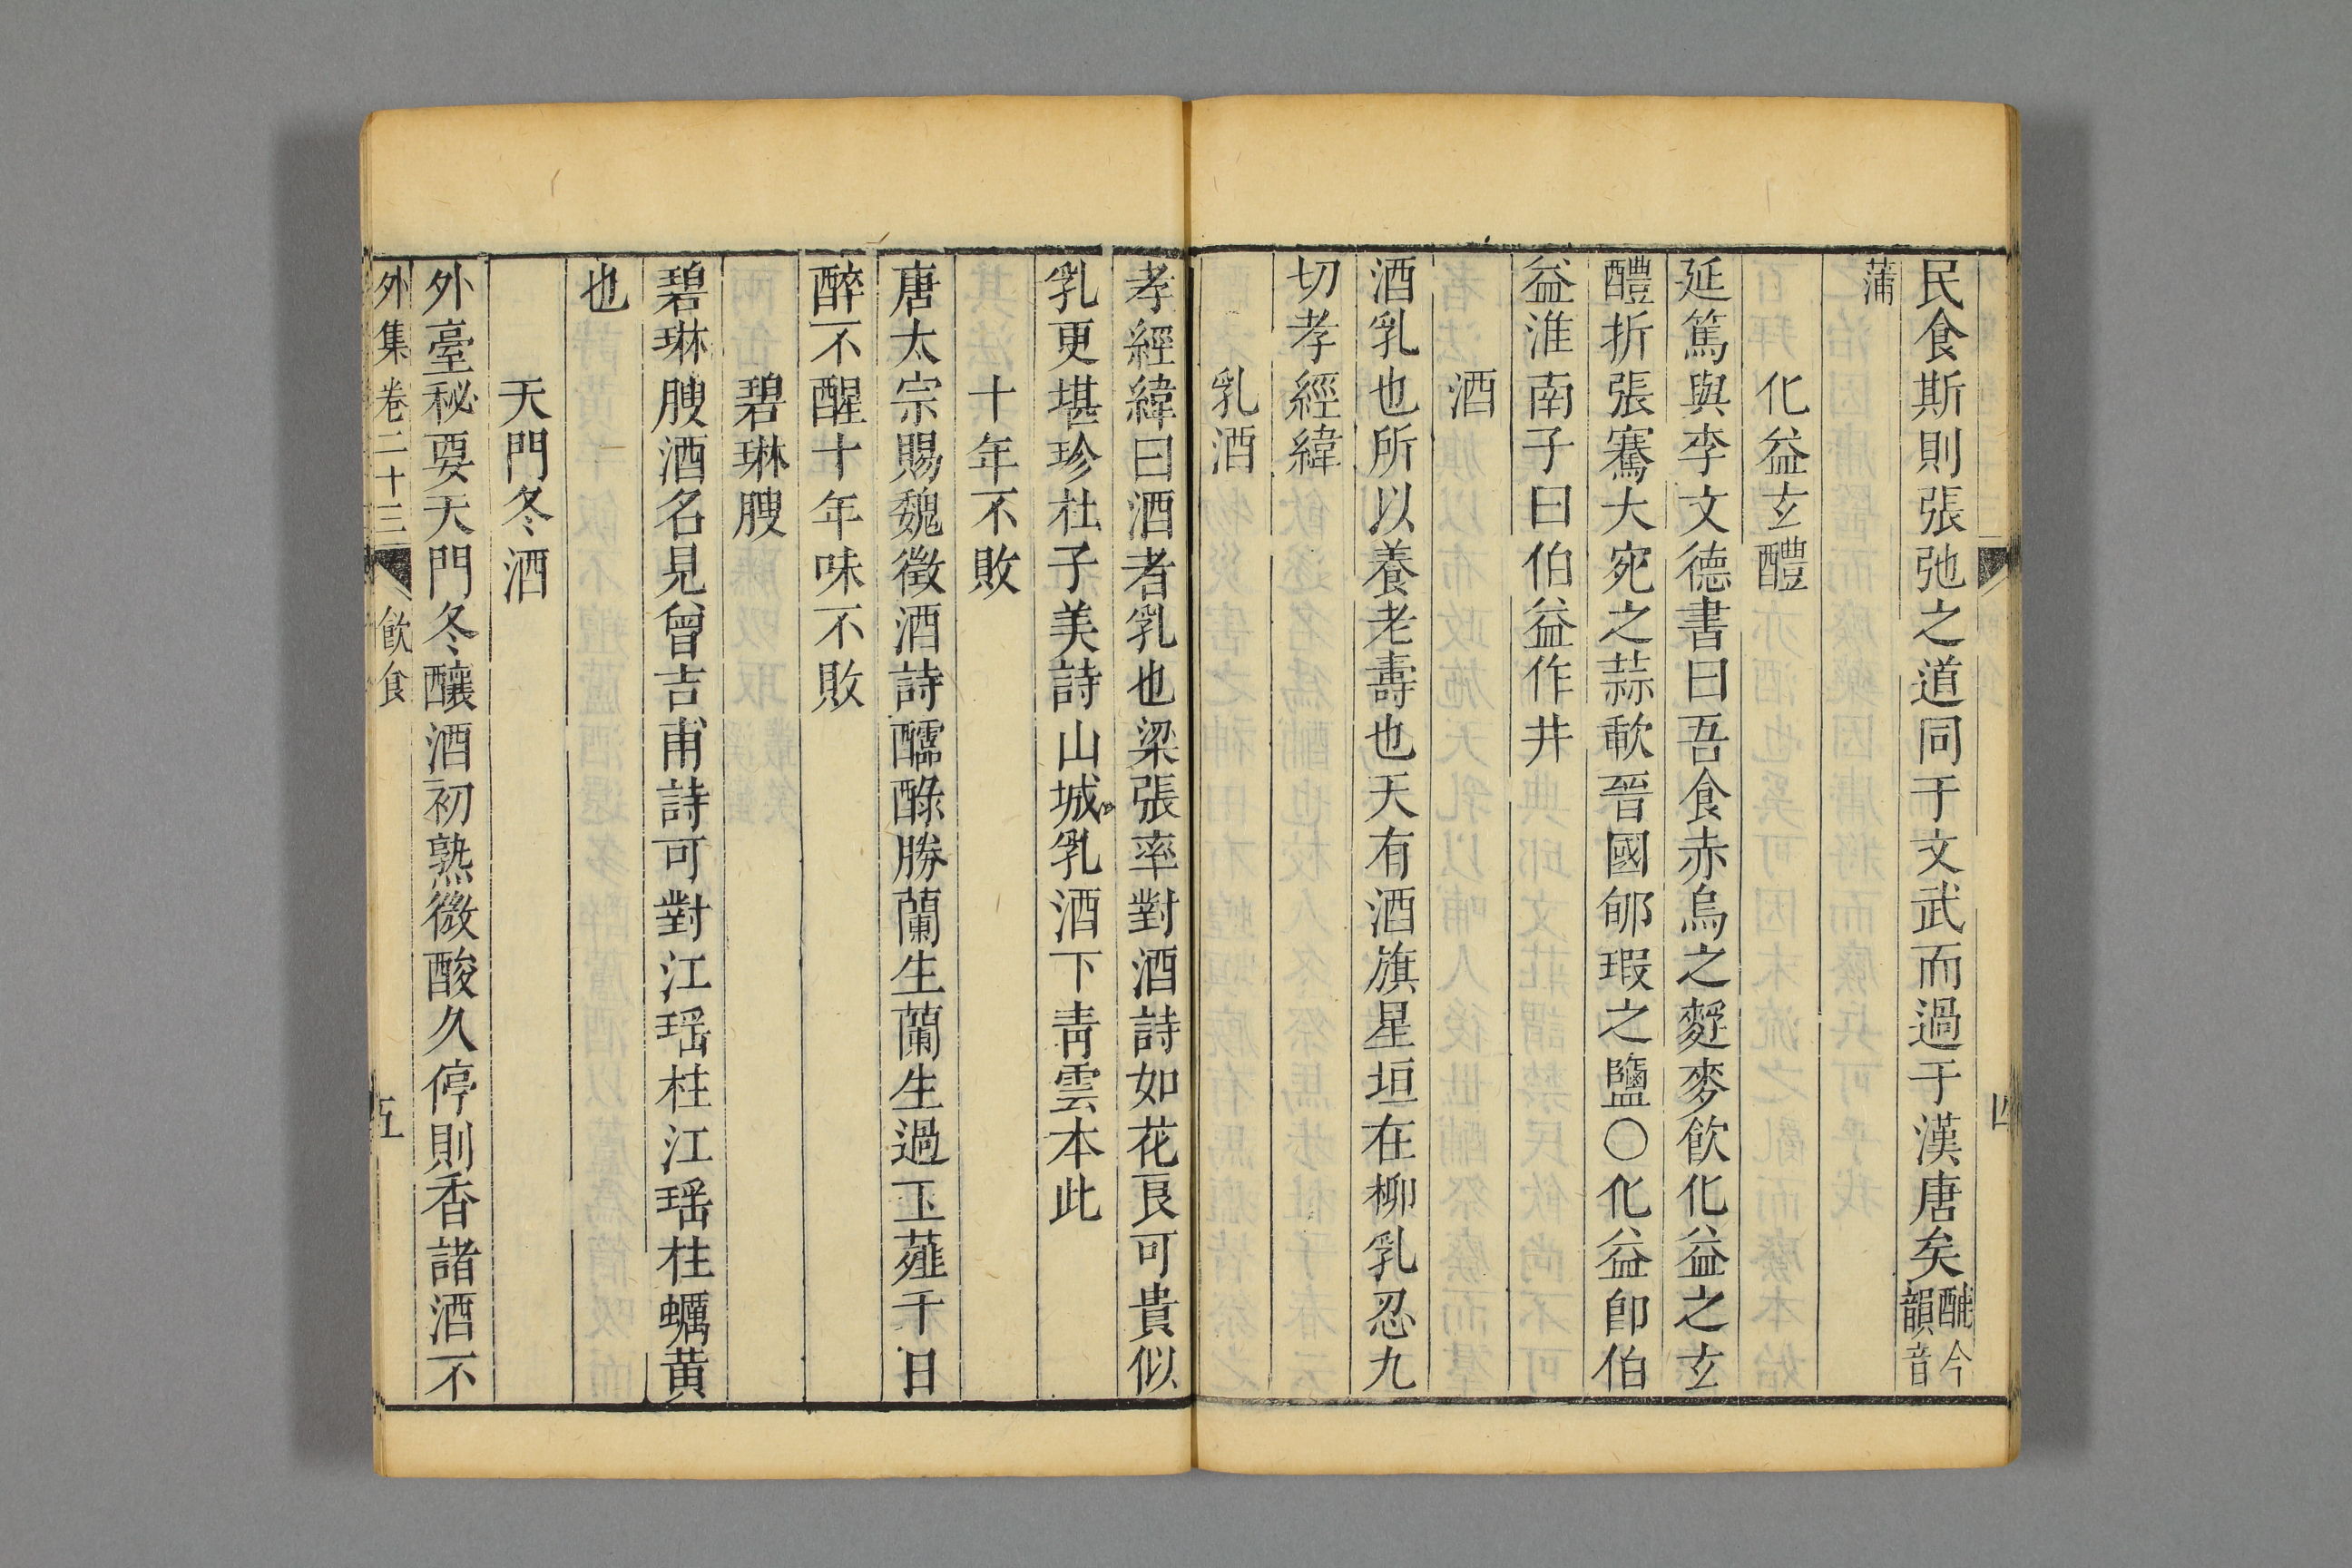 四
民食斯則張弛之道同于文武而過于漢唐矣酺今韻音
蒲
化益玄醴
延篤與李文德書曰吾食赤烏之麰麥飲化益之玄
醴折張騫大宛之蒜歃晉國郇瑕之鹽〇化益卽伯
益淮南子曰伯益作井
酒
酒乳也所以養老壽也天有酒旗星垣在柳乳忍九
切孝經緯
乳酒
孝經緯曰酒者乳也梁張率對酒詩如花良可貴似
乳更堪珍杜子美詩山城乳酒下青雲本此
十年不敗
唐太宗賜魏徵酒詩醽醁勝蘭生蘭生過玉薤千日
醉不醒十年味不敗
碧琳腴
碧琳腴酒名見曾吉甫詩可對江瑶柱江瑶柱蠣黄
也
天門冬酒
外臺秘要天門冬釀酒初熟微酸久停則香諸酒不
外集卷二十三 飲食 五